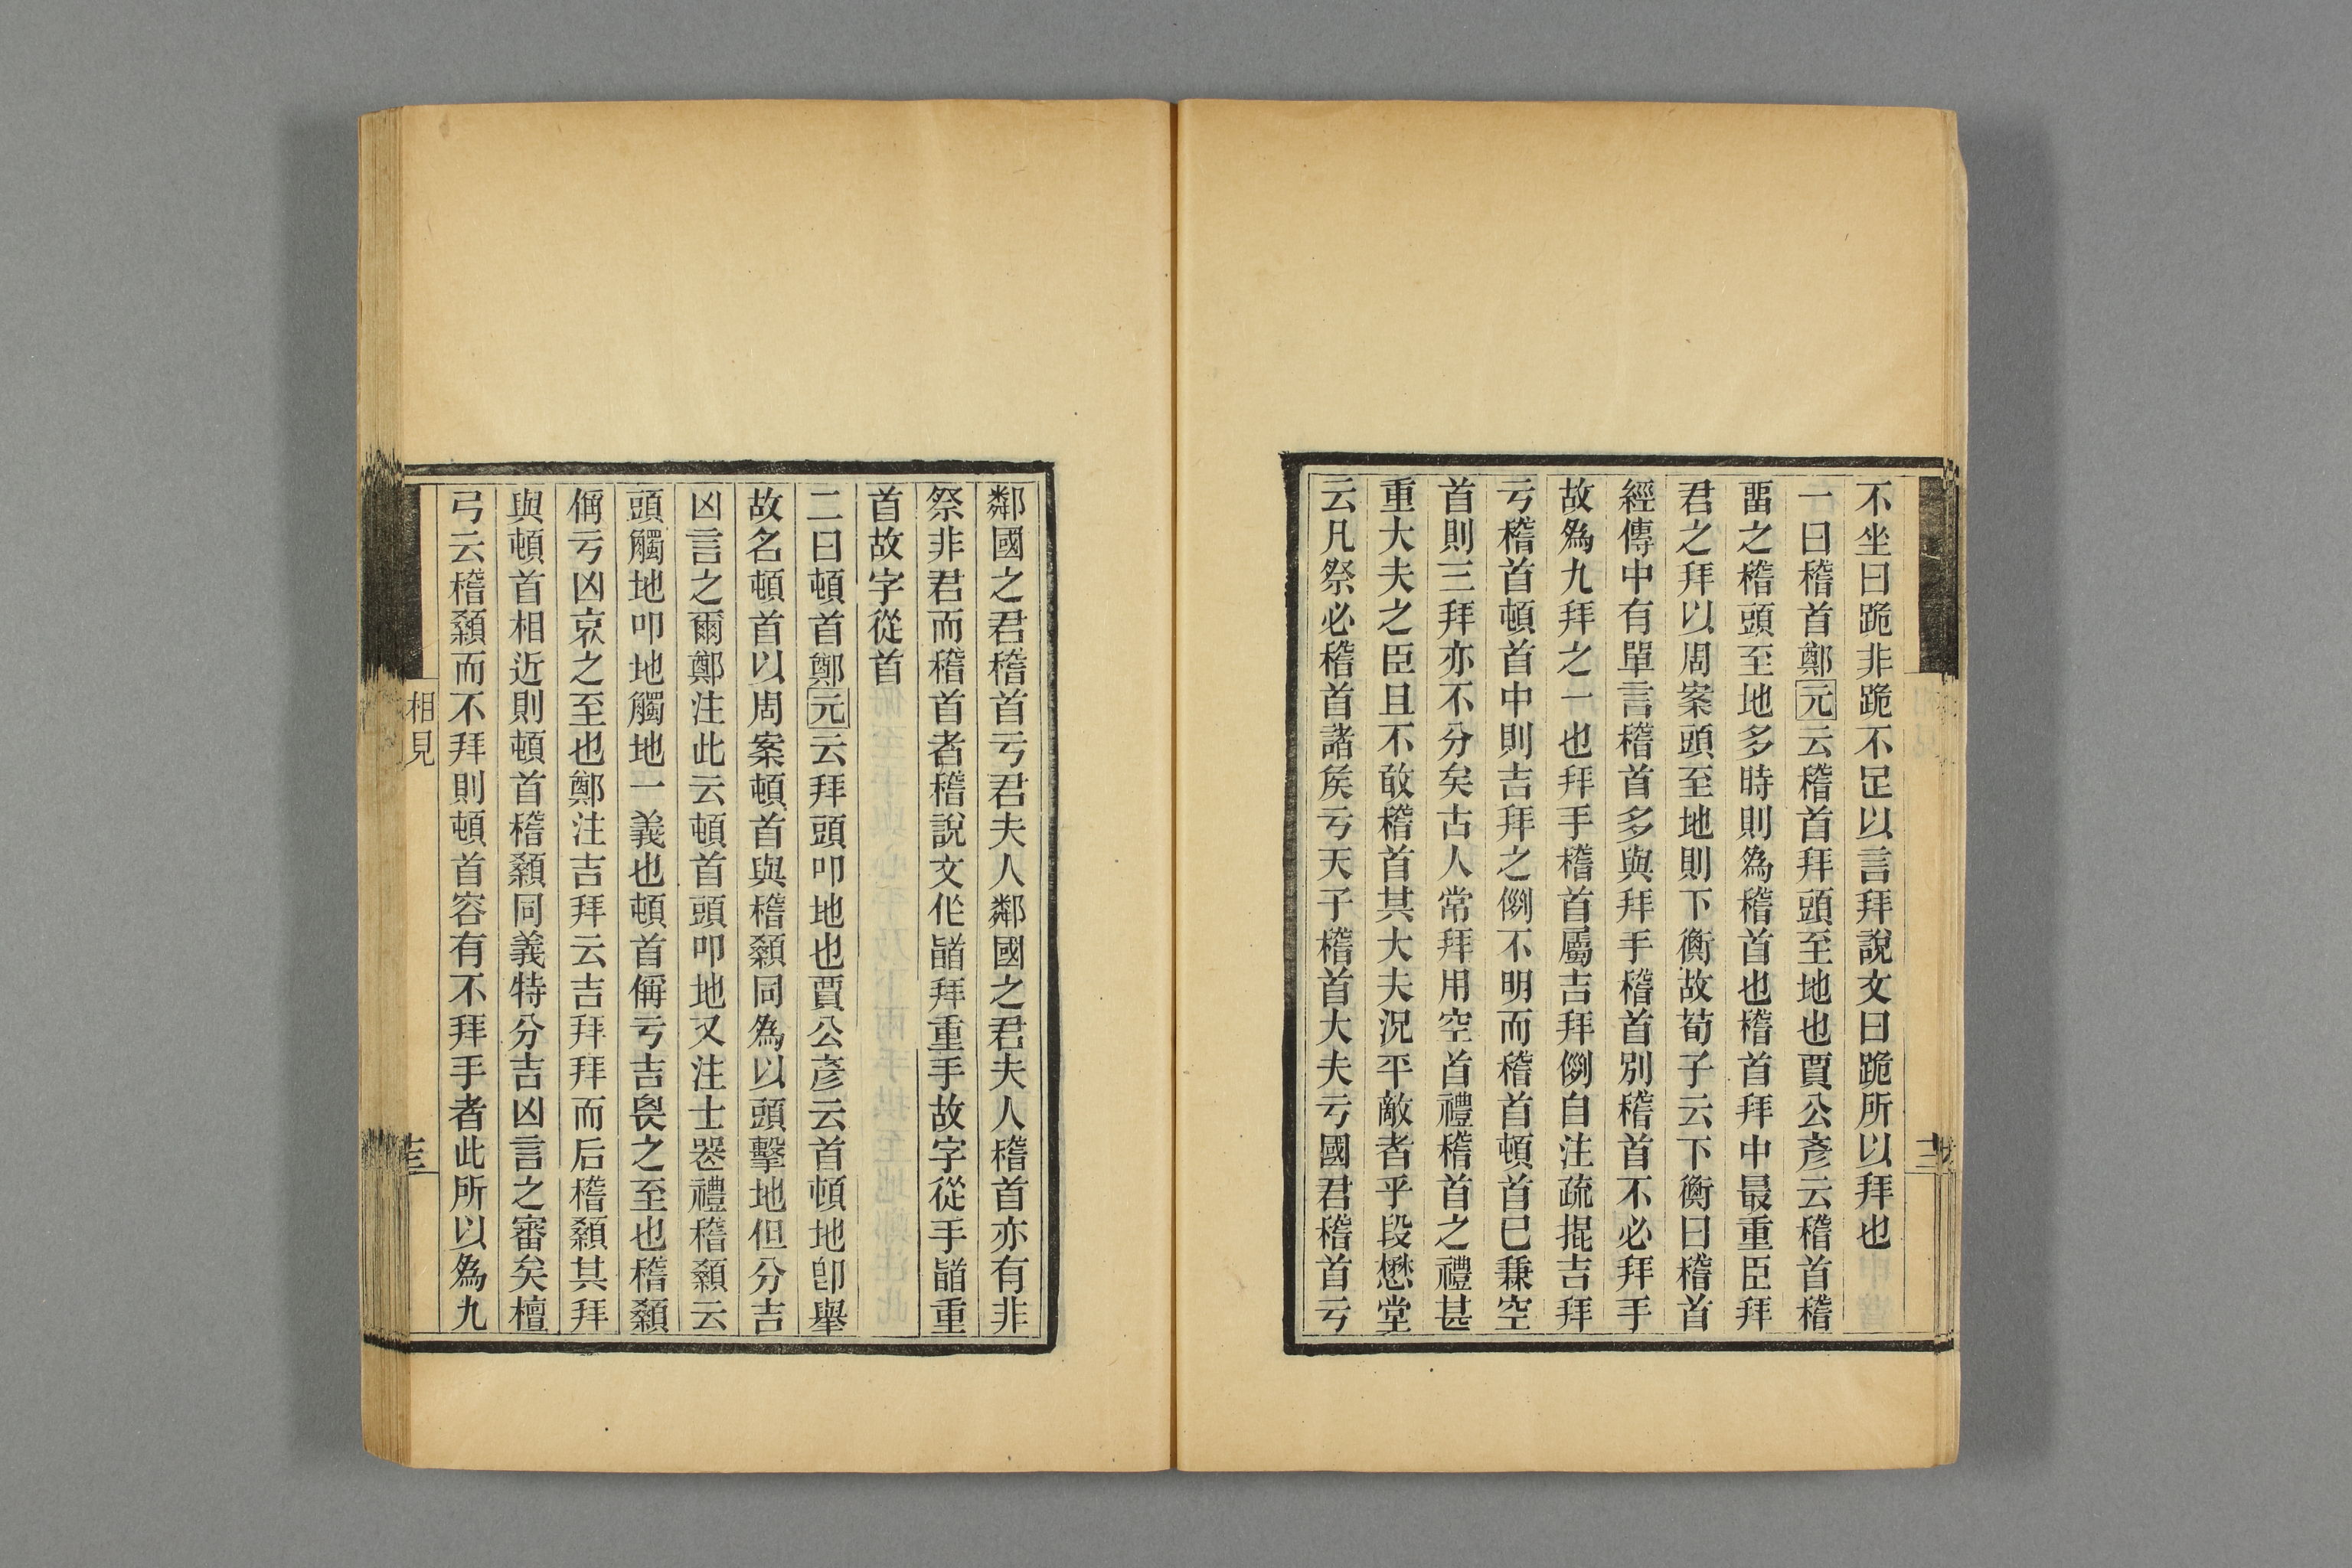 不坐曰跪非跪不足以言拜說文曰跪所以拜也
一曰䭫首鄭元云䭫首拜頭至地也賈公彥云䭫首䭫
畱之䭫頭至地多時則爲䭫首也䭫首拜中最重臣拜
君之拜以周案頭至地則下衡故荀子云下衡曰䭫首
經傳中有單言䭫首多與拜手䭫首別䭫首不必拜手
故爲九拜之一也拜手䭫首屬吉拜例自注疏掍吉拜
亏䭫首頓首中則吉拜之例不明而䭫首頓首已兼空
首則三拜亦不分矣古人常拜用空首禮䭫首之禮甚
重大夫之臣且不敢䭫首其大夫況平敵者乎段懋堂
云凡祭必䭫首諸矦亏天子䭫首大夫亏國君䭫首亏
鄰國之君䭫首亏君夫人鄰國之君夫人䭫首亦有非
祭非君而䭫首者䭫說文作䭫拜重手故字從手䭫重
首故字從首
二曰頓首鄭元云拜頭叩地也賈公彥云首頓地卽舉
故名頓首以周案頓首與䭫顙同爲以頭擊地但分吉
凶言之爾鄭注此云頓首頭叩地又注士喪禮䭫顙云
頭觸地叩地觸地一義也頓首偁亏吉畏之至也䭫顙
偁亏凶哀之至也鄭注吉拜云吉拜拜而后䭫顙其拜
與頓首相近則頓首䭫顙同義特分吉凶言之審矣檀
弓云䭫顙而不拜則頓首容有不拜手者此所以爲九
相見